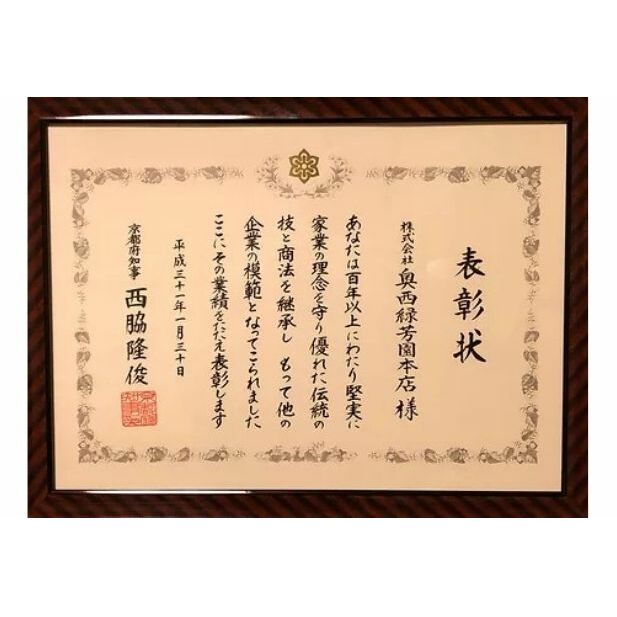 表彰状
株式会社 奥西緑芳園本店 様
あなたは百年以上にわたり堅実に
家業の理念を守り優れた伝統の
技と商法を継承し もって他の
企業の模範となってこられました
ここにその業績をたたえ表彰します
平成三十一年一月三十日
京都府知事 西脇隆俊